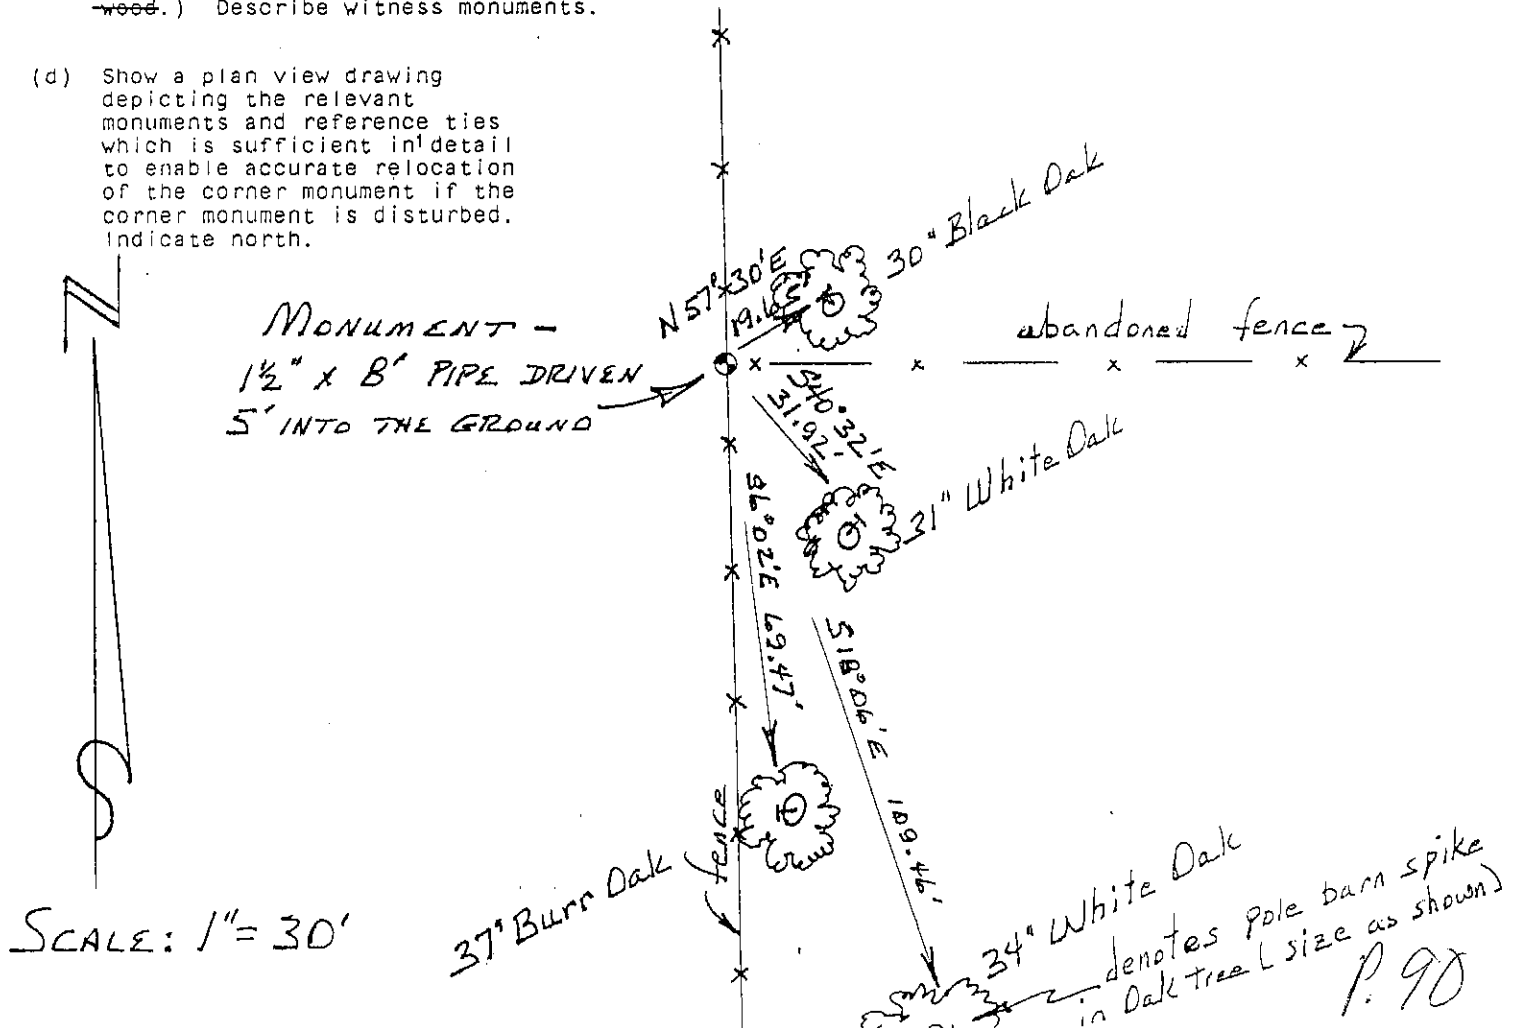 wood.) Describe witness monuments.
(d) Show a plan view drawing
depicting the relevant
monuments and reference ties
which is sufficient in detail
to enable accurate relocation
of the corner monument if the
corner monument is disturbed.
Indicate north.
MONUMENT -
1½" x 8' PIPE DRIVEN
5' INTO THE GROUND
N 57° 30' E
30" Black Oak
abandoned fence
S40°32'E
31.92'
31" White Oak
S6°02'E 69.47'
S18°06'E 109.46'
fence
37" Burr Oak
34" White Oak
denotes pole barn spike
in Oak tree (size as shown)
SCALE: 1"= 30'
P. 90